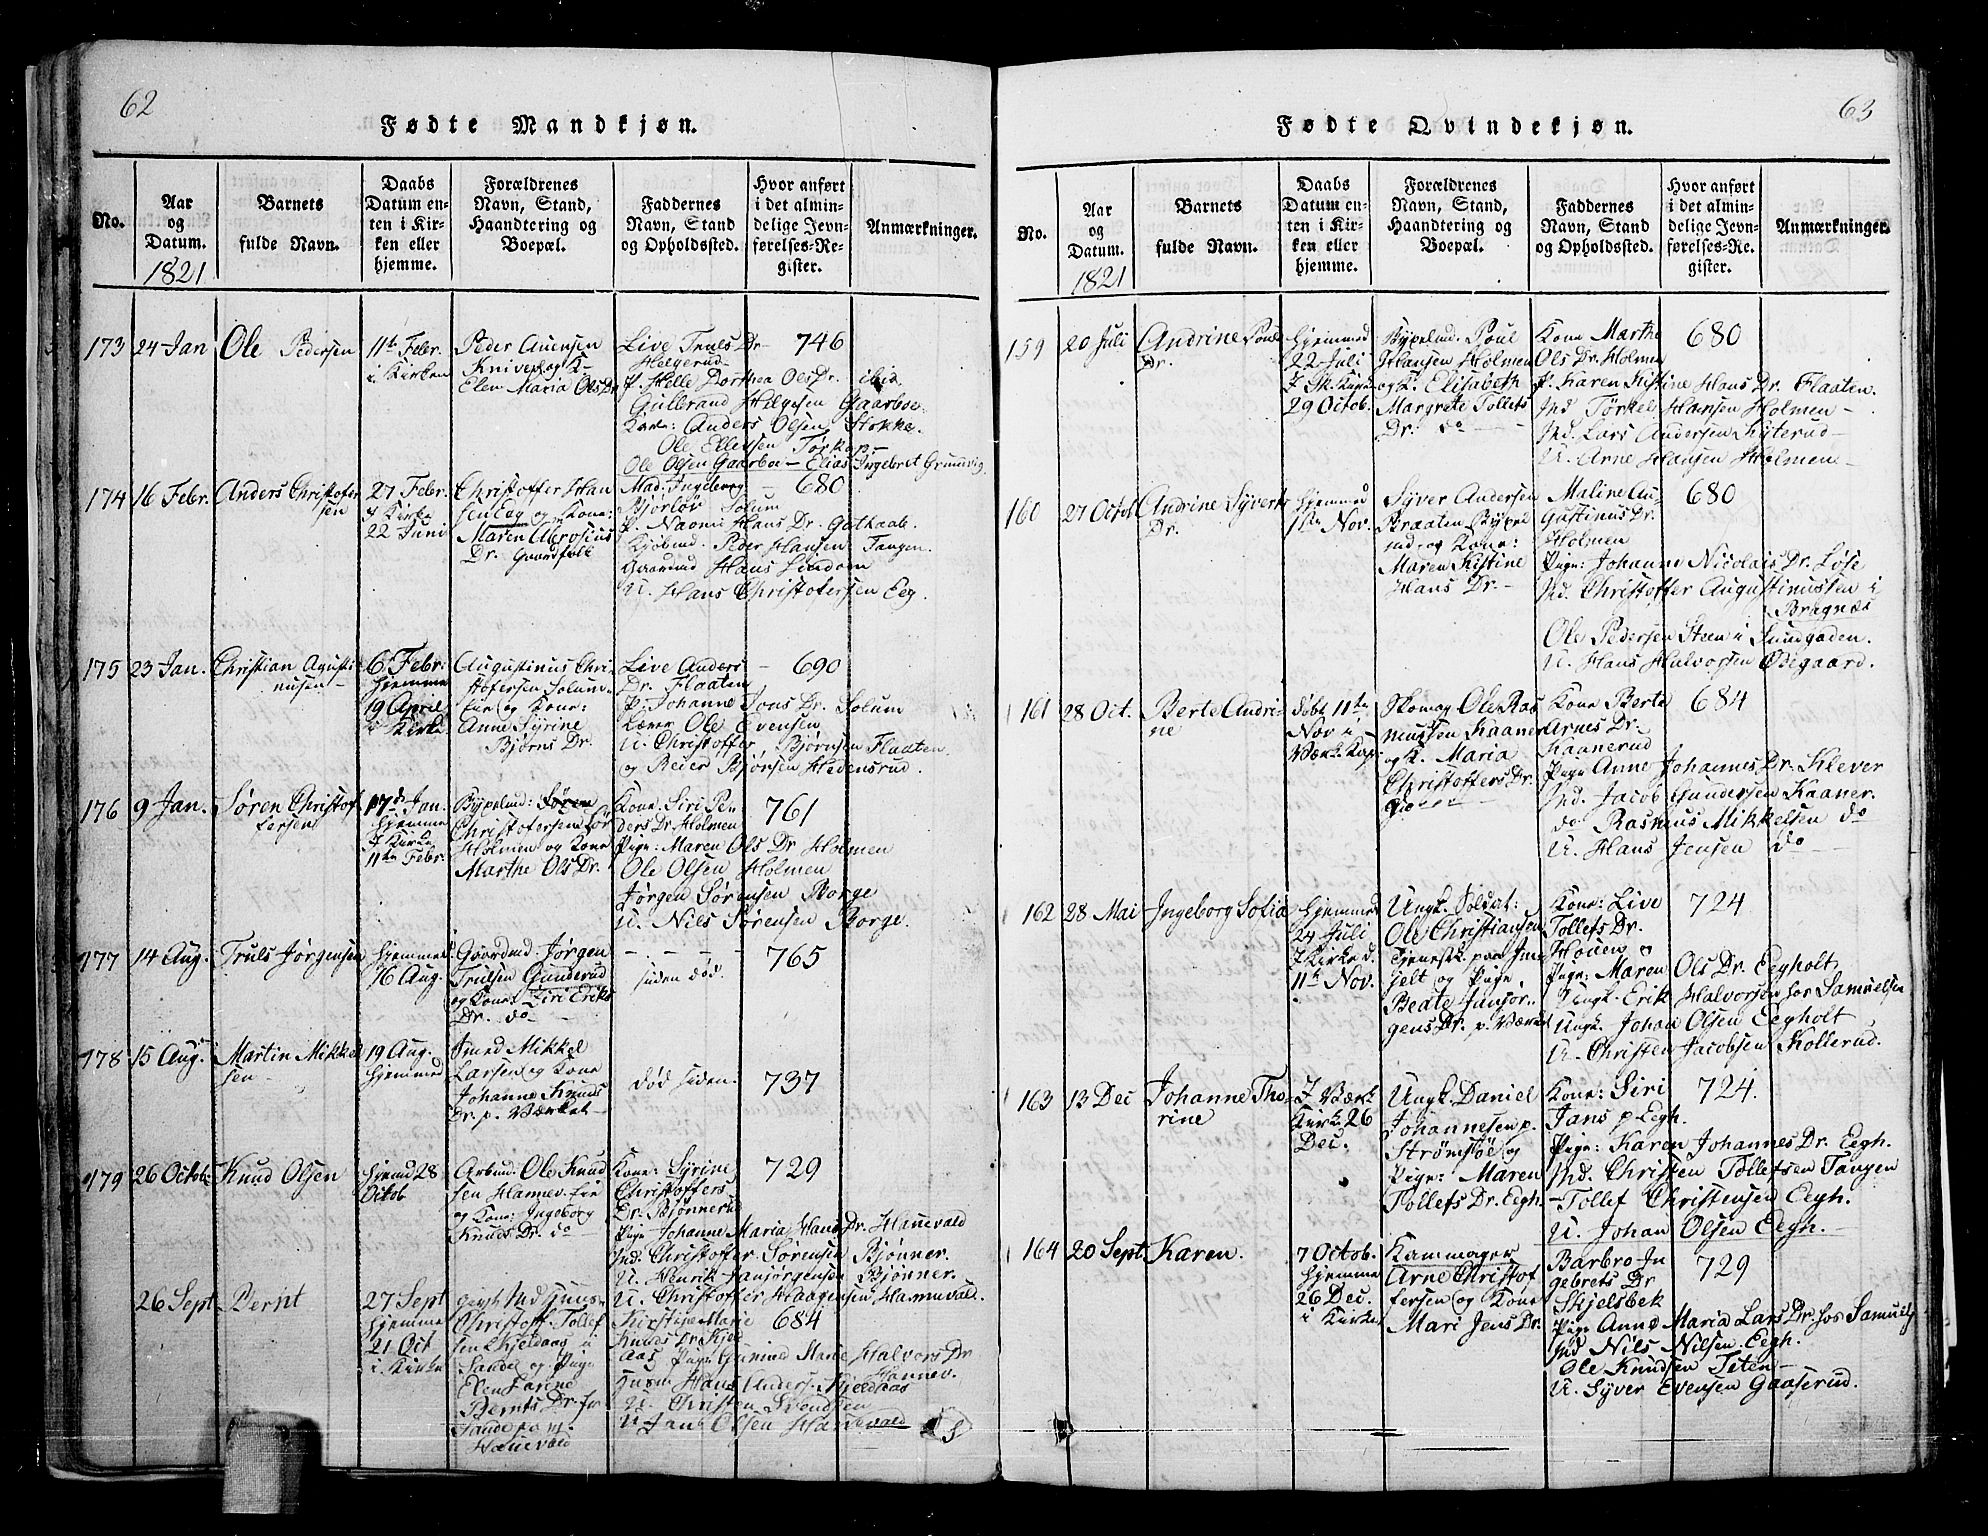 62
Fødte Mandkjøn.
No.
Aar
og
Datum.
1821
Barnets
fulde Navn.
Daabs
Datum en-
ten i Kir-
ken eller
hjemme.
Forældrenes
Navn, Stand,
Haandtering og
Boepæl.
Faddernes
Navn, Stand
og Opholdssted.
Hvor anført
i det almin-
delige Jevn-
førelses-Re-
gister.
Anmærkninger.
173
24 Jan
Ole Pedersen
11te Febr.
i Kirken
Peder Auensen
Knive og K
Elen Maria Ols Dr
Live Truls Dr
Helgerud
P. Helle Dorthea Ols Dr. ibid.
Gulbrand Helgesen Gaarboe
Anders Olsen Stokke.
Ole Ellevsen Tørkop.
Ole Olsen Gaarboe – Elias Ingebret Grunvig
746
174
16 Febr.
Anders Christofer
sen
27 Febr.
I Kirke
22 Juni
Christoffer Han
sen Eeg og Kone:
Maren Abrosius
Dr. Gaardfolk
Mad. Ingeborg
Bjørløv Solum
P. Naomi Hans Dr. Gothaab.
Kjøbmd. Peder Hansen Tangen.
Gaardmd Hans Lindom
U. Hans Christofersen Eeg.
680
175
23 Jan.
Christian Agusti
nusen
6 Febr.
hjemme
19 April
i Kirke
Augustinus Chri
stofersen Solum-
eie og Kone:
Anne Syrine
Bjørns Dr.
Live Anders
Dr. Flaaten
P. Johanne Jons Dr. Solum
Lærer Ole Evensen
U. Christoffer Bjørnsen Flaaten
og Reier Bjørsen Hedensrud.
690
176
9 Jan.
Søren Christof
fersen
17de Jan.
hjemme
I Kirke
11te Febr.
Bypelmd: Søren
Christofersen Sør
Holmen og Kone
Marthe Ols Dr.
Kone. Siri Pe
ders Dr. Holmen
Pige: Maren Ols Dr Holmen
Ole Olsen Holmen
Jørgen Sørensen Borge
U. Nils Sørensen Borge.
761
177
14 Aug.
Truls Jørgensen
hjemme
16 Aug.
Gaardmd Jørgen
Trulsen Gunderud
og Kone: Siri Eriks
Dr. do
siden død.
765
178
15 Aug.
Martin Mikkel
sen
19 Aug.
hjemmed
Smed Mikkel
Larsen og Kone
Johanne Knuds
Dr. p. Værket
død siden.
737
179
26 Octob:
Knud Olsen
hjemd 28
Octob
Arbmd: Ole Knud
sen Hannev. eie
og Kone: Ingeborg
Knuds Dr. do
Kone: Syrine
Christoffers
Dr. Bjønnerud
Pige Johanne Maria Hans Dr. Hanevald
Md. Christoffer Sørensen Bjønner.
U. Henrik Janjørgensen Bjønner.
U. Christoffer Haagensen Hannevald.
729
26 Sept
Bernt
27 Sept
hjemme
21 Oct
i Kirke
Christoff. Tollef
sen Kjeldaas i
Sande og Pige
Elen Larine
Bernts Dr.
Sande p. m.
Hanevald
Kirstine Marie
Knuds Dr. Kjeld
aas Pige Gunnild Marie Halvors Dr
Hannev.
Hans Anders. Kjeldaas
U. Christen Svendsen
U. Jans Olsen Hanevald
684
63
Fødte Qvindekjøn.
No.
Aar
og
Datum.
1821
Barnets
fulde Navn.
Daabs
Datum en-
ten i Kir-
ken eller
hjemme.
Forældrenes
Navn, Stand,
Haandtering og
Boepæl.
Faddernes
Navn, Stand
og Opholdssted.
Hvor anført
i det almin-
delige Jevn-
førelses-Re-
gister.
Anmærkninger.
159
20 Juli
Andrine Pouls
Dr.
hjemmed
22 Juli
I Sk. Kirke
29 Octob.
Bypelmd. Poul
Johansen Holmen
og K. Elisabeth
Margrete Tollefs
Dr. do
Kone Marthe
Ols Dr. Holmen
P. Karen Kistine Hans Dr. Flaaten.
Md Tørkel Hansen Holmen –
Md. Lars Andersen Kyterud –
U. Arne Hansen Holmen –
680
160
27 Octob
Andrine Syvers
Dr.
hjemmed
1ste Nov.
Syver Andersen
Braaten Bypel
md. og Kone:
Maren Kistine
Hans Dr. –
Maline Au-
gustinus Dr.
Holmen
Pige: Johanne Nicolais Dr. Løse
Md. Christoffer Augustinussen i
Bragnæs
Ole Pedersen Steen i Sundgaden.
U. Hans Halvorsen Ødegaard.
680
161
28 Oct.
Berte Andri-
ne
døbt 11te
Nov i
Værk Kap
Skomag Ole Ras
mussen Kaaner
og K. Maria
Christoffers Dr.
Kone Berte
Arnes Dr.
Kaanerud
Pige Anne Johannes Dr. Klever
Md. Jacob Gundersen Kaaner.
do Rasmus Mikkelsen do
U. Hans Jensen do
684
162
28 Mai
Ingeborg Sofia
hjemmed
24 Juli
I Kirke d.
11te Nov.
Ungk. Soldat:
Ole Christiansen
Tjenestk. paa Jme
helt og Pige
Beate Janjør-
gens Dr. p. Værket
Kone: Live
Tollefs Dr.
Houen
Pige: Maren Ols Dr. Eegholt
Ungk. Erik Halvorsen hos Samuelsen
Ungk. Johan Olsen Eegholt
U. Christen Jacobsen Kollerud.
724
163
13 Dec
Johanne Tho-
rine
I Værk
Kirk. 26
Dec.
Ungk. Daniel
Johannesen p.
Strømsøe og
Pige: Maren
Tollefs Dr. Eegh.
Kone: Siri
Jans p Eegh.
Pige: Karen Johannes Dr. Eegh.
Md. Christen Tollefsen Tangen
– Tollef Christensen Eegh.
U. Johan Olsen Eegh. –
724.
164
20 Sept
Karen.
7 Octob.
hjemme
26 Dec.
i Kirke
Kammager
Arne Christof
fersen og Kone
Mari Jens Dr.
Barbro In
gebrets Dr
Skjelsbek
Pige Anne Maria Lars Dr. hos Samuels
Md Nils Nilsen Eegh.
Ole Knudsen Teten –
U. Syver Evensen Gaaserud.
729